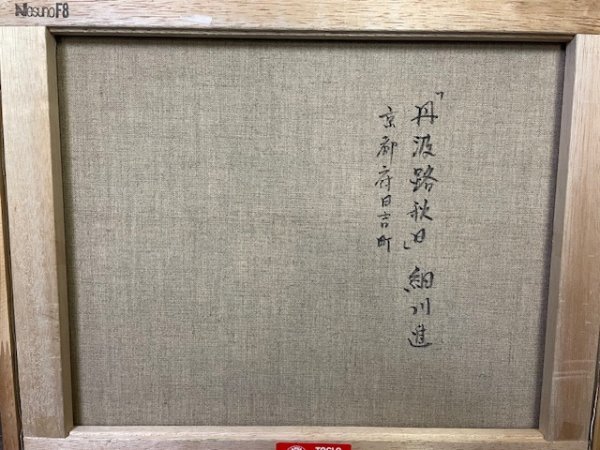 Nasuno F8
「丹波路秋日」 細川進
京都府日吉町
TOCLO